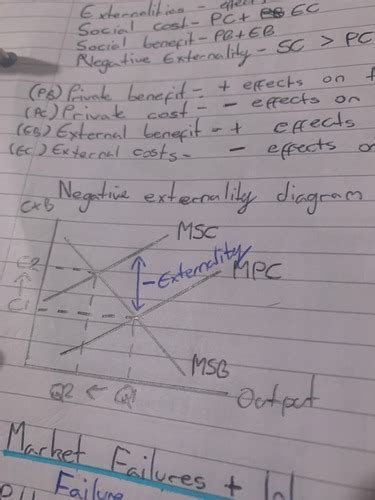 Externalities - effect
Social cost - PC + EC
Social benefit - PB + EB
Negative Externality - SC > PC
(PB) Private benefit - + effects on
(PC) Private cost - - effects on
(EB) External benefit - + effects
(EC) External costs - - effects on
Negative externality diagram
C&B
MSC
C2
- Externality
MPC
C1
MSB
Q2 ← Q1
Output
Market Failures +
Failure